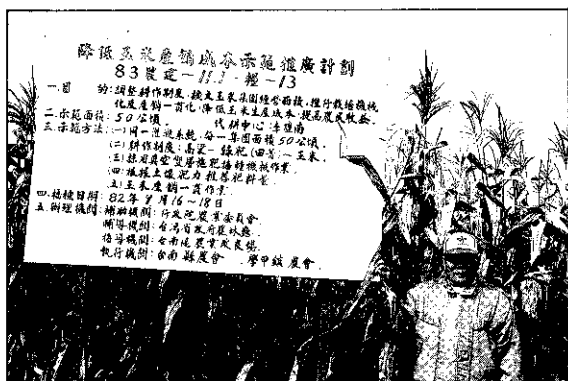 降低玉米產銷成本示範推廣計劃
83農建－11.1－糧－13
一.目　的:調整耕作制度,擴大玉米集團經營面積,推行栽培機械
化及產銷一貫化,降低玉米生產成本,提高農民收益.
二.示範面積:50公頃.　代耕中心:李陸南
三.示範方法:(一)同一灌溉系統,每一集團面積50公頃.
(二)耕作制度:高粱－綠肥(田菁)－玉米.
(三)採用真空型層施肥播種機械作業.
(四)根據土壤肥力推荐肥料量.
(五)玉米產銷一貫作業.
四.播種日期:82年9月16～18日
五.辦理機關:補助機關:行政院農業委員會
輔導機關:台灣省政府農林廳.
指導機關:台南區農業改良場.
執行機關:台南縣農會.學甲鎮農會.